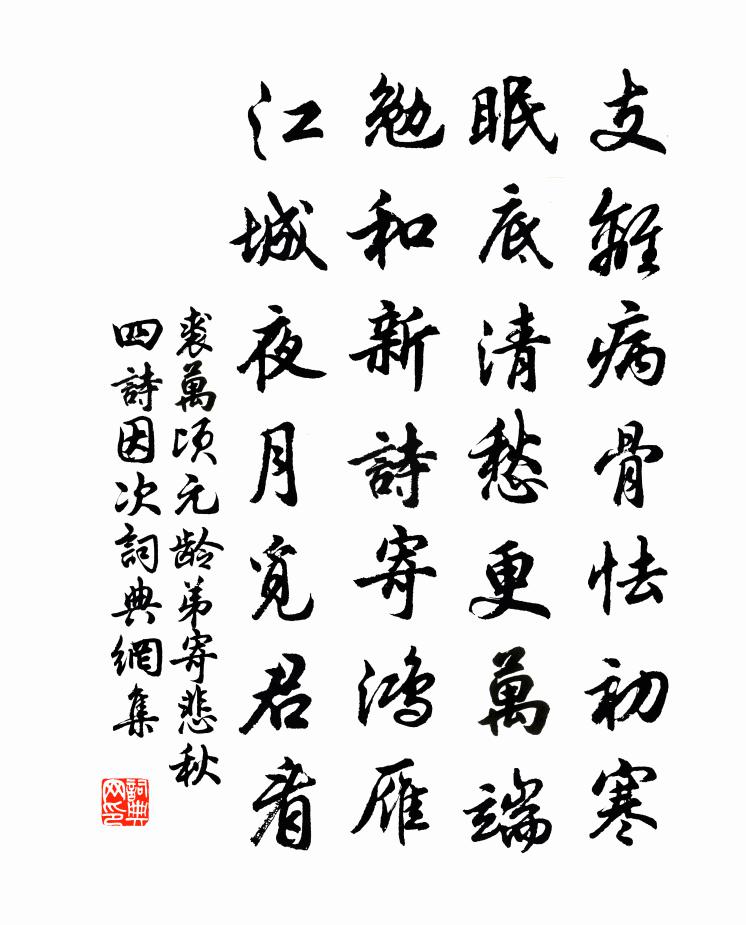 支離病骨怯初寒
眠底清愁更萬端
勉和新詩寄鴻雁
江城夜月覓君看
裘萬頃元龄弟寄悲秋
四詩因次詞典網集
詞典
网印